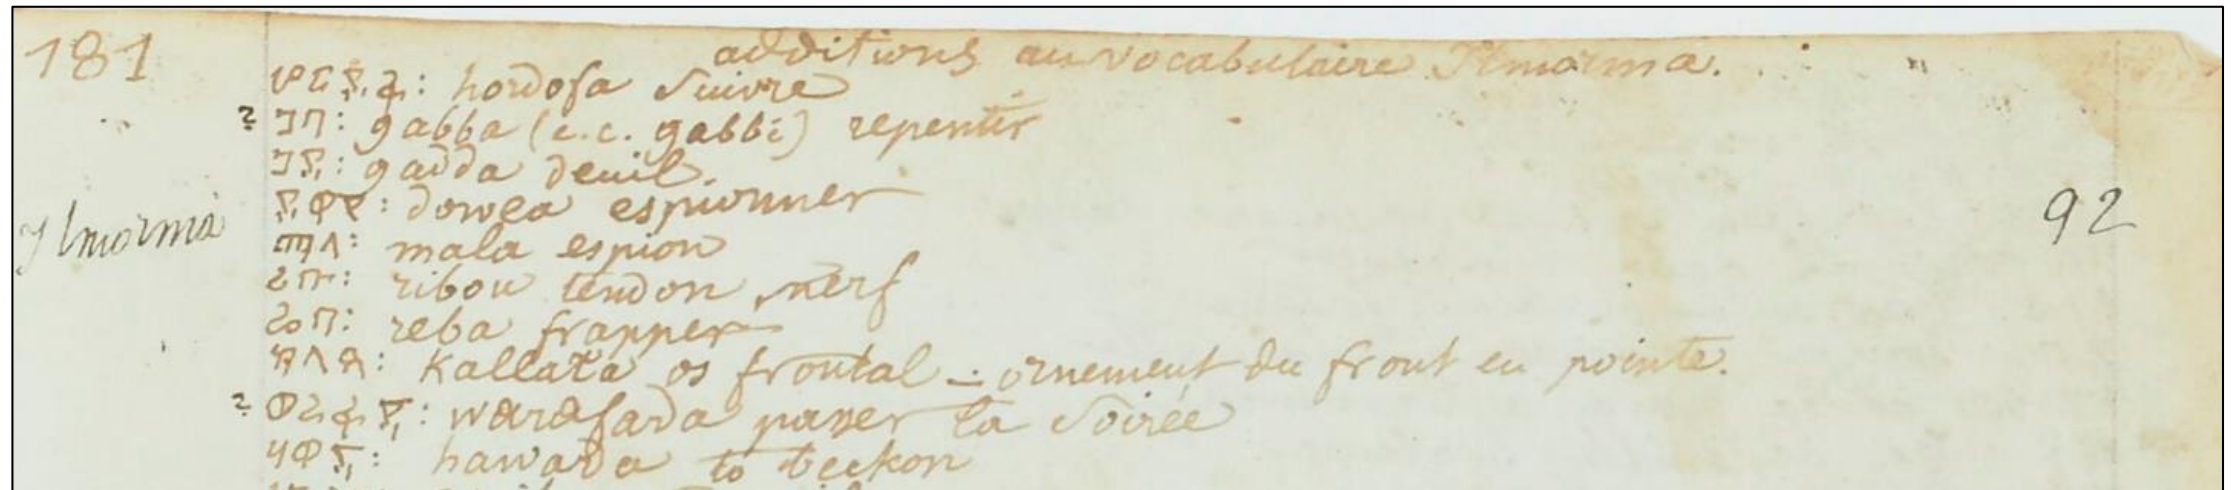 181
additions au vocabulaire Ilmorma.
ሆርዶፈ: hordofa suivre
? ገበ: gabba (c.c. gabbi) repentir
ገደ: gadda deuil.
ደዐ: dowea espionner
Ilmorma
92
መለ: mala espion
ሪቡ: ribou tendon, nerf
ሬበ: reba frapper
ቀለጠ: Kallata os frontal – ornement du front en pointe.
? ወረፈደ: warafada passer la soirée
ሀወደ: hawada to beckon